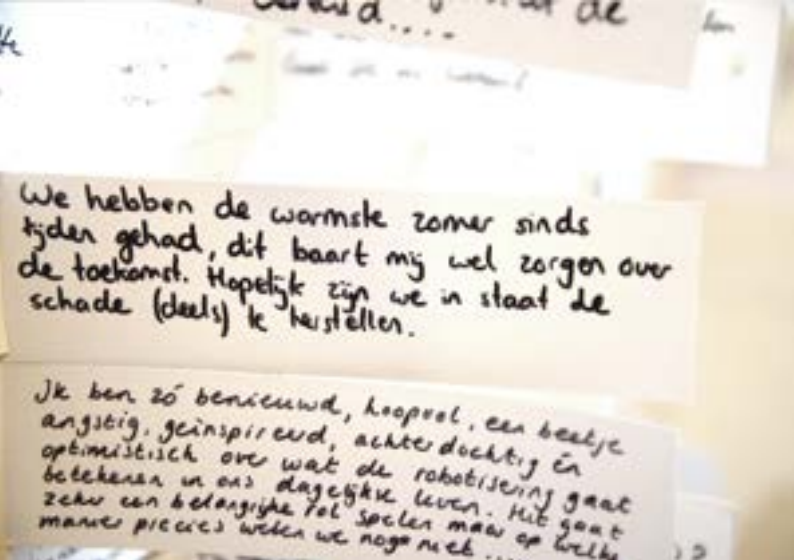 de
We hebben de warmste zomer sinds
tijden gehad, dit baart mij wel zorgen over
de toekomst. Hopelijk zijn we in staat de
schade (deels) te herstellen.
Ik ben zó benieuwd, hoopvol, een beetje
angstig, geïnspireerd, achterdochtig én
optimistisch over wat de robotisering gaat
betekenen in ons dagelijkse leven. Het gaat
zeker een belangrijke rol spelen maar op welke
manier precies weten we nog niet ...